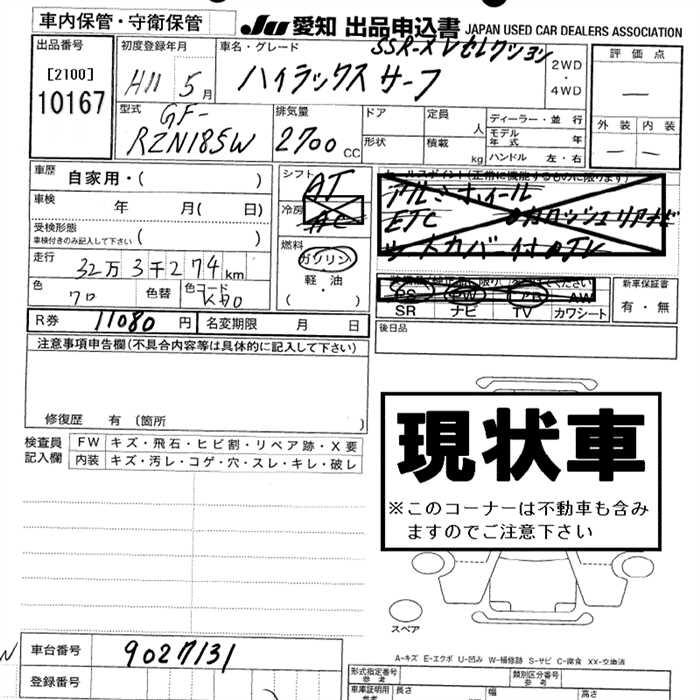 車内保管・守衛保管
JU 愛知 出品申込書 JAPAN USED CAR DEALERS ASSOCIATION
出品番号
[2100]
10167
初度登録年月
H11 5月
車名・グレード
SSR-X Vセレクション
ハイラックスサーフ
2WD
・
4WD
評価点
―
外装 内装
― ―
型式
GF-
RZN185W
排気量
2700 CC
ドア
形状
定員 人
積載 kg
ディーラー・並行
モデル年式 年
ハンドル 左・右
車歴 自家用・( )
車検 年 月( 日)
受検形態
車検付きのみ記入して下さい ( )
走行 32万3千274km
色 クロ 色替 色コード
R券 11080円 名変期限 月 日
シフト AT
冷房 AC
燃料
ガソリン
軽油
( ・ )
セールスポイント(正常に機能するものに限ります)
アルミホイール
ETC
PS PW AB AW
SR ナビ TV カワシート
新車保証書
有・無
後日品
注意事項申告欄(不具合内容等は具体的に記入して下さい)
修復歴 有 (箇所 )
検査員記入欄
FW キズ・飛石・ヒビ割・リペア跡・X要
内装 キズ・汚レ・コゲ・穴・スレ・キレ・破レ
現状車
※このコーナーは不動車も含み
ますのでご注意下さい
スペア
A-キズ E-エクボ U-凹み W-補修跡 S-サビ C-腐食 XX-交換済
車台番号 9027131
登録番号
形式指定番号
参考
類別区分番号
参考
車庫証明用
参考
長さ 幅 高さ